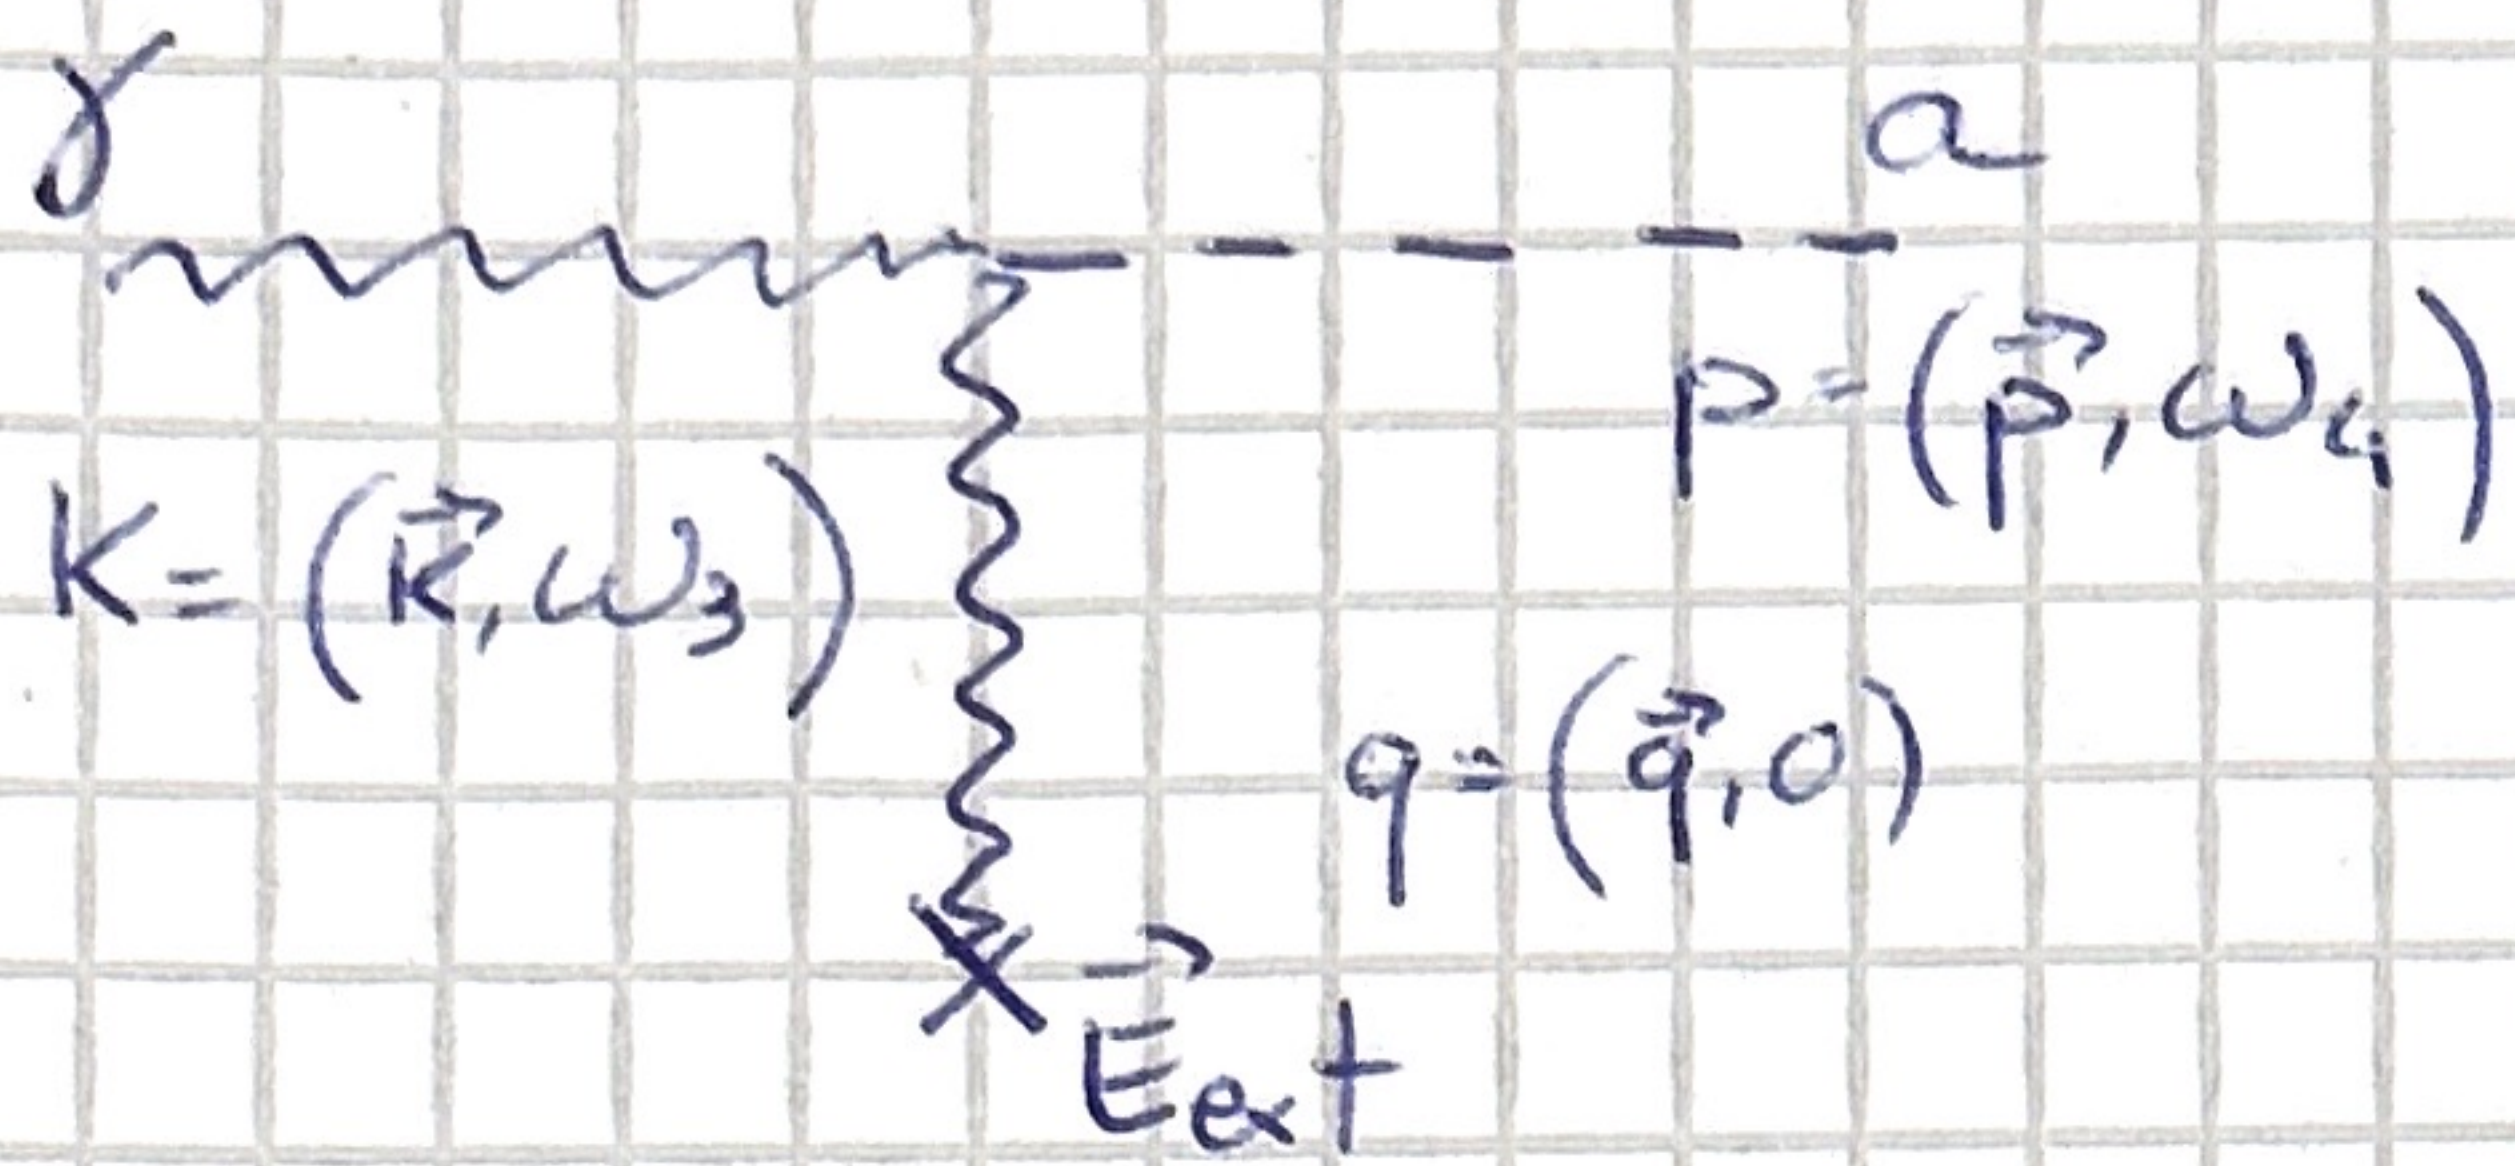 γ
a
p = (p⃗, ω₄)
K = (k⃗, ω₃)
q = (q⃗, 0)
E⃗ext